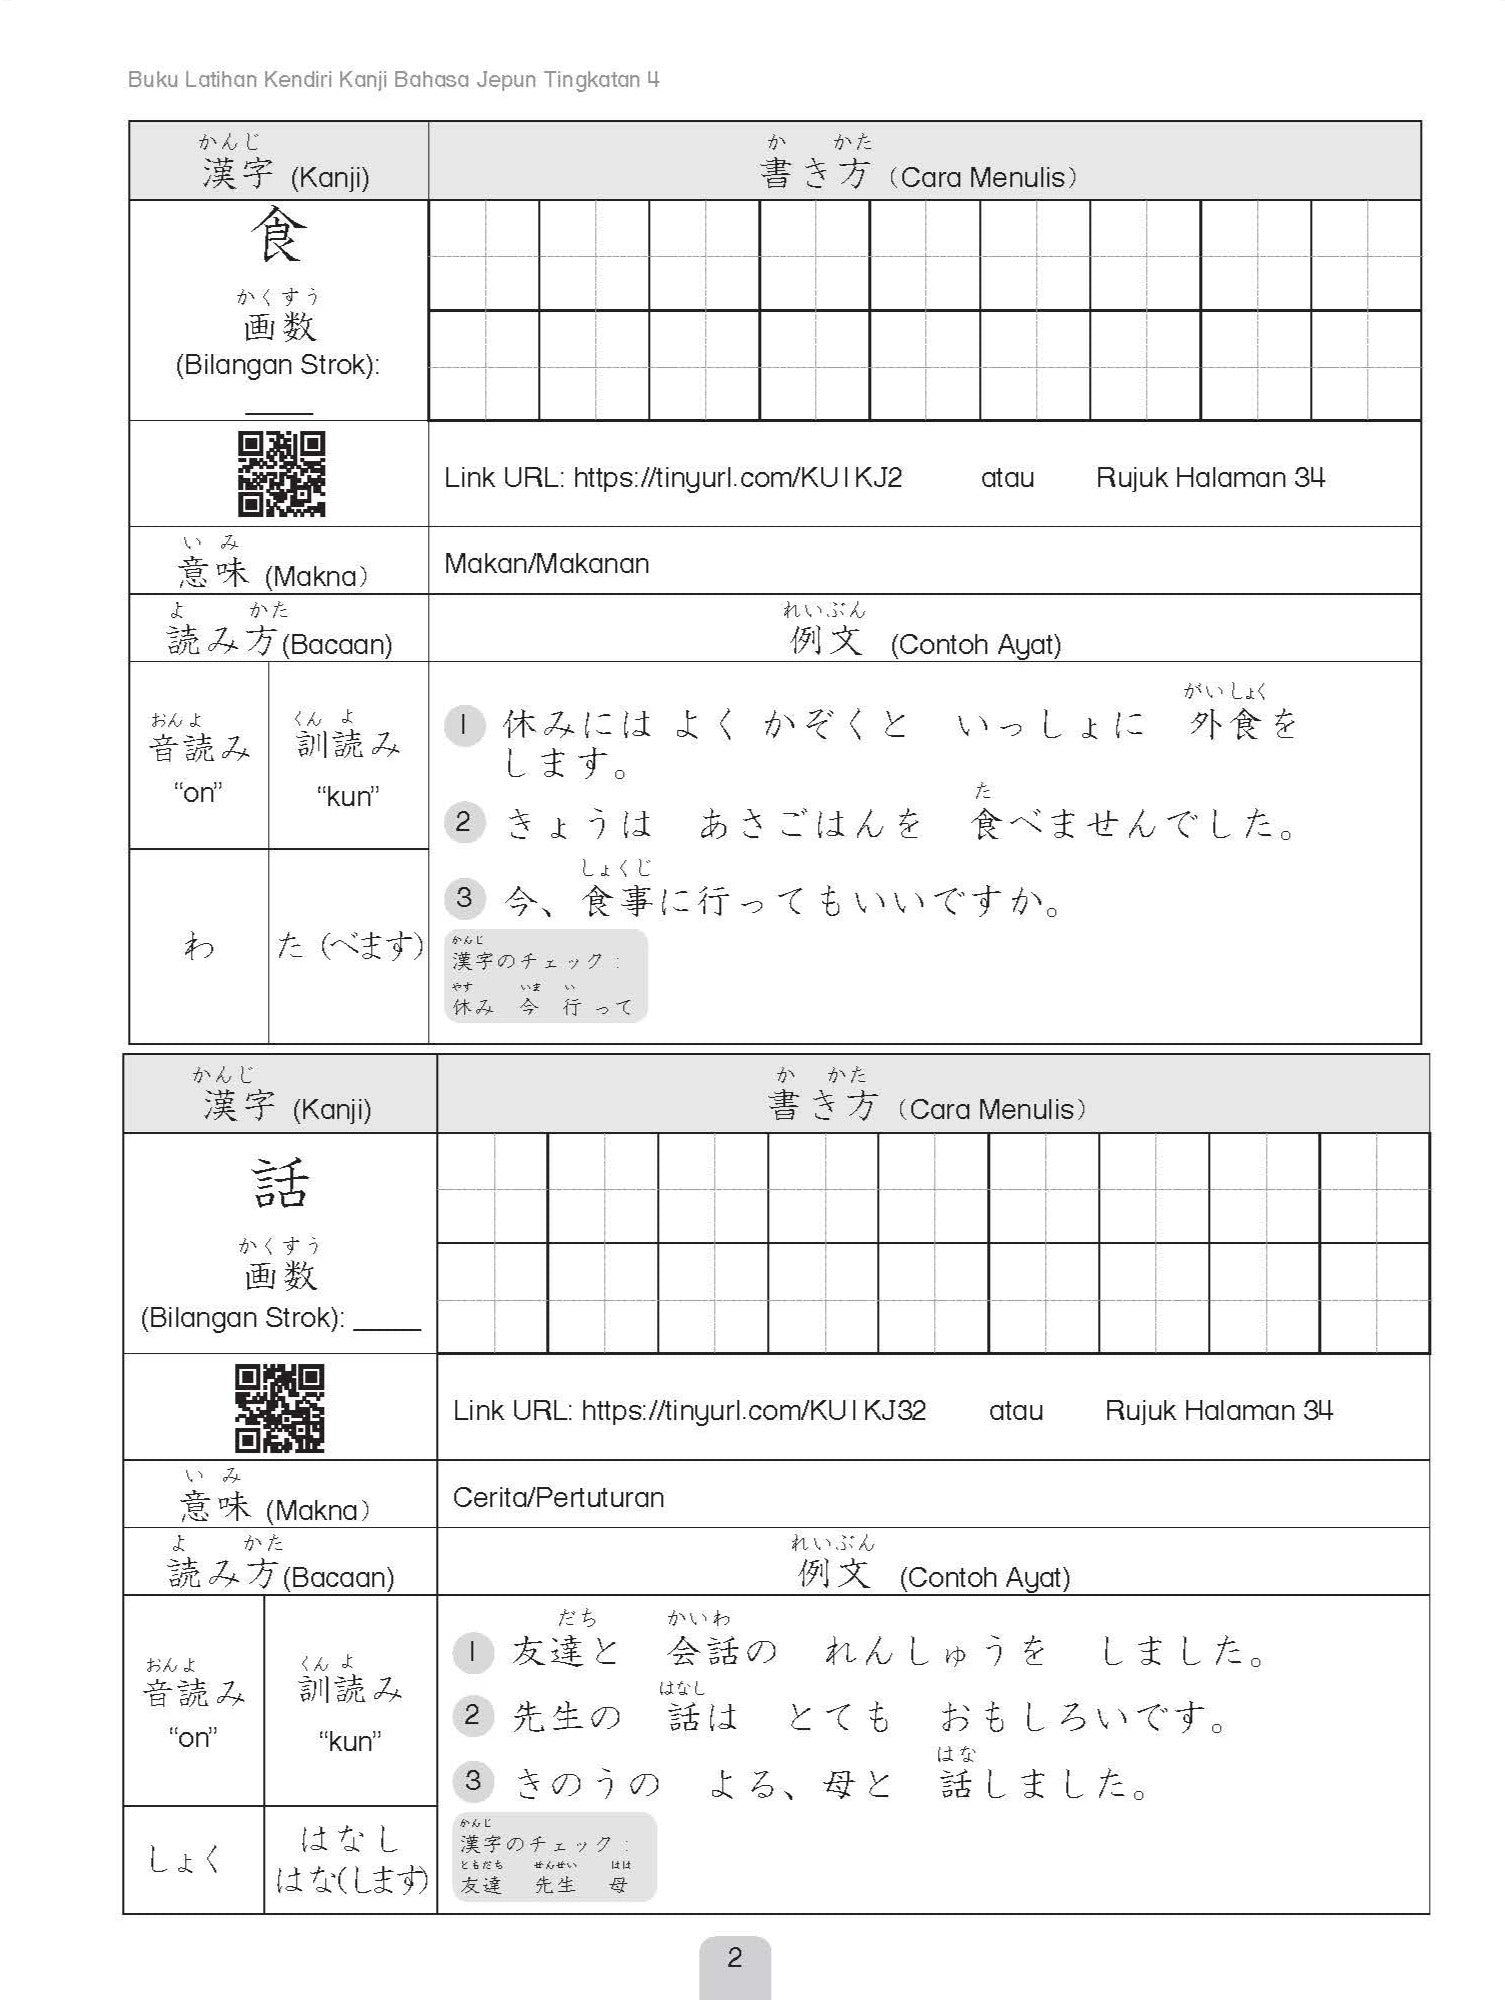 Buku Latihan Kendiri Kanji Bahasa Jepun Tingkatan 4
かんじ
漢字 (Kanji)
か かた
書き方（Cara Menulis）
食
かくすう
画数
(Bilangan Strok):
_____
Link URL: https://tinyurl.com/KU1KJ2 atau Rujuk Halaman 34
いみ
意味 (Makna）
Makan/Makanan
よ かた
読み方(Bacaan)
れいぶん
例文 (Contoh Ayat)
おんよ
音読み
“on”
くん よ
訓読み
“kun”
わ
た（べます）
がいしょく
1 休みには よく かぞくと いっしょに 外食を
します。
た
2 きょうは あさごはんを 食べませんでした。
しょくじ
3 今、食事に行ってもいいですか。
かんじ
漢字のチェック：
やす いま い
休み 今 行って
かんじ
漢字 (Kanji)
か かた
書き方（Cara Menulis）
話
かくすう
画数
(Bilangan Strok): _____
Link URL: https://tinyurl.com/KU1KJ32 atau Rujuk Halaman 34
いみ
意味 (Makna）
Cerita/Pertuturan
よ かた
読み方(Bacaan)
れいぶん
例文 (Contoh Ayat)
おんよ
音読み
“on”
くん よ
訓読み
“kun”
しょく
はなし
はな(します)
だち かいわ
1 友達と 会話の れんしゅうを しました。
はなし
2 先生の 話は とても おもしろいです。
はな
3 きのうの よる、母と 話しました。
かんじ
漢字のチェック：
ともだち せんせい はは
友達 先生 母
2